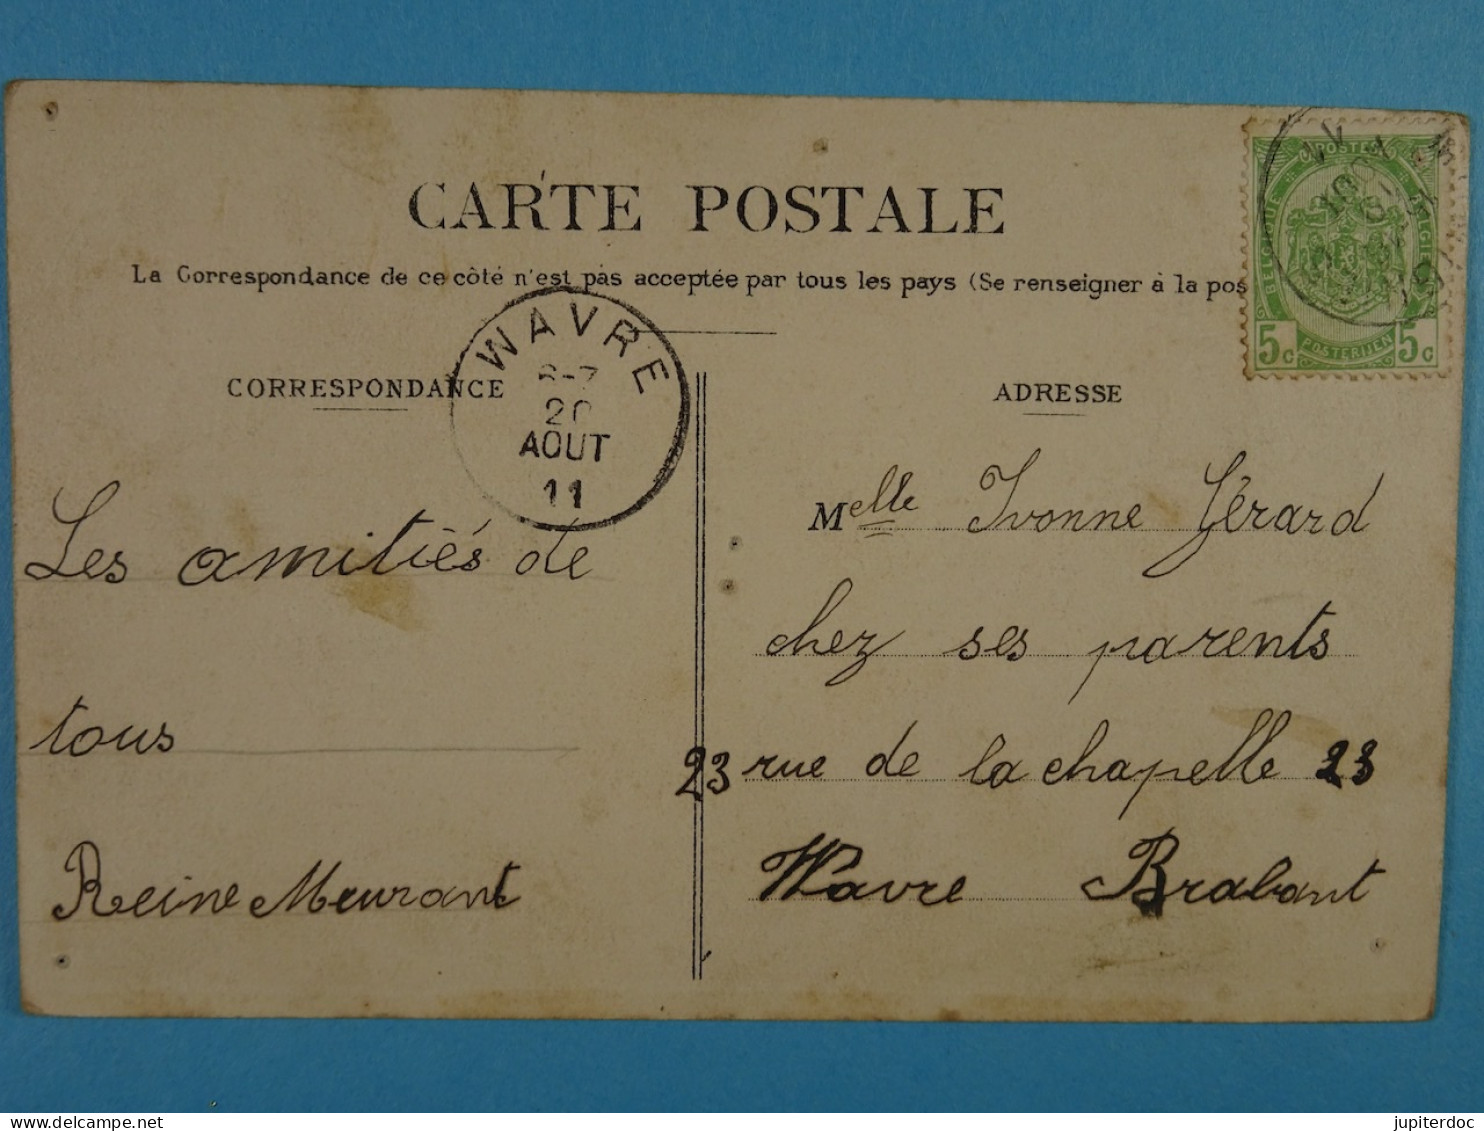 CARTE POSTALE
La Correspondance de ce côté n'est pas acceptée par tous les pays (Se renseigner à la pos
CORRESPONDANCE
ADRESSE
WAVRE
6-7
20
AOUT
11
POSTES
BELGIQUE
BELGIË
5c POSTERIJEN 5c
Les amitiés de
tous
Reine Meurant
Melle Yvonne Gérard
chez ses parents
23 rue de la chapelle 23
Wavre Brabant
jupiterdoc